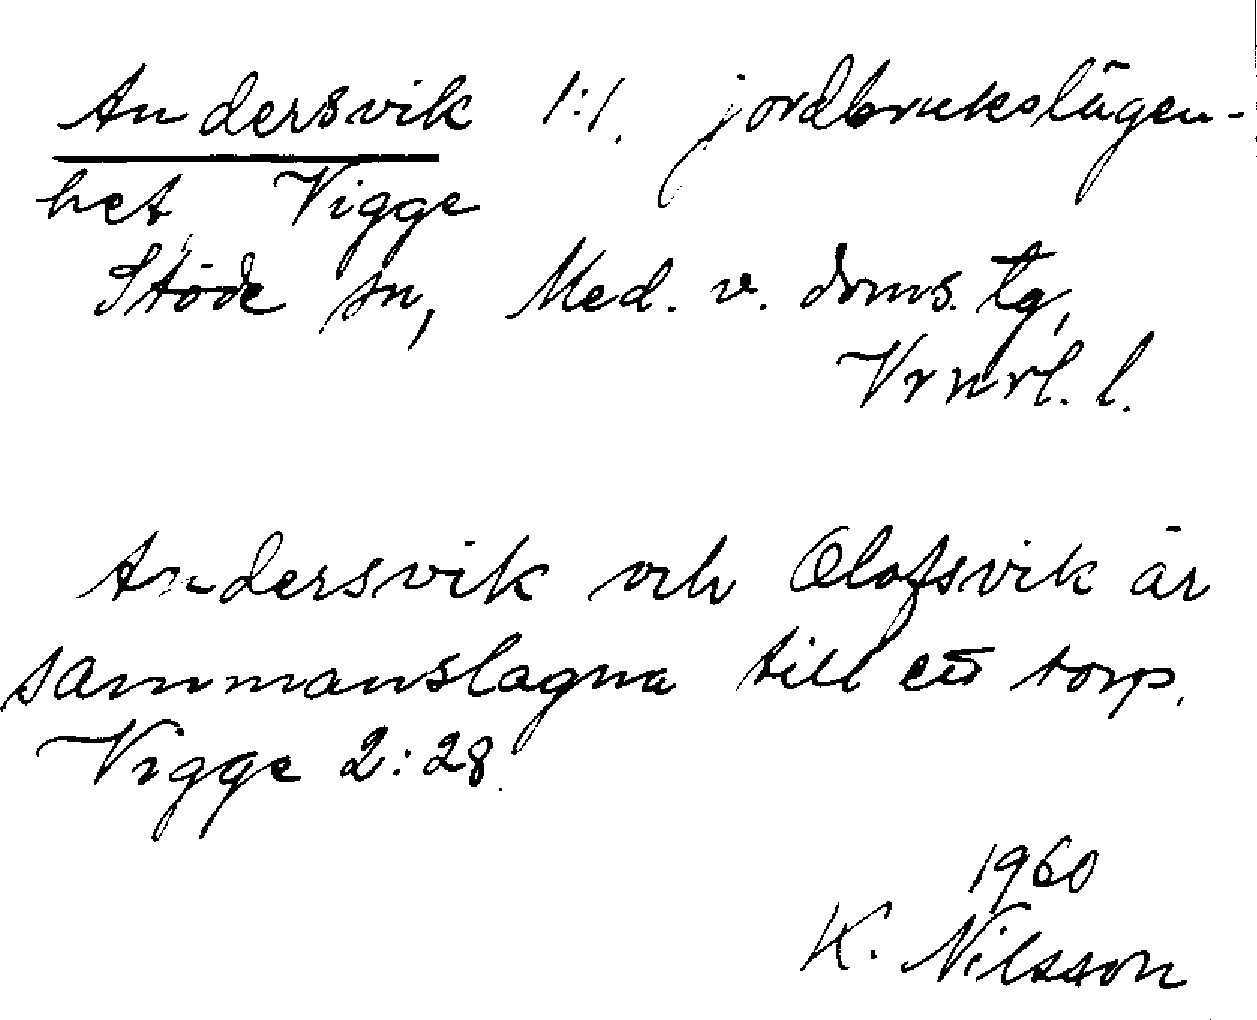 Andersvik 1:1. jordbrukslägen-
het Vigge
Stöde sn, Med. v. doms. tg,
Vrnrl. l.
Andersvik och Olofsvik är
sammanslagna till ett torp.
Vigge 2:28.
1960
K. Nilsson